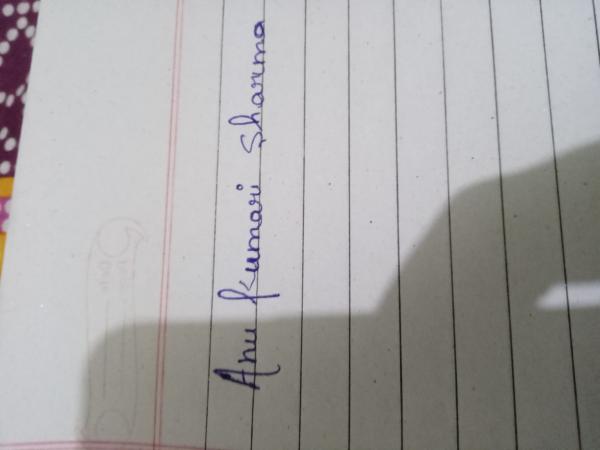 Anu Kumari Sharma